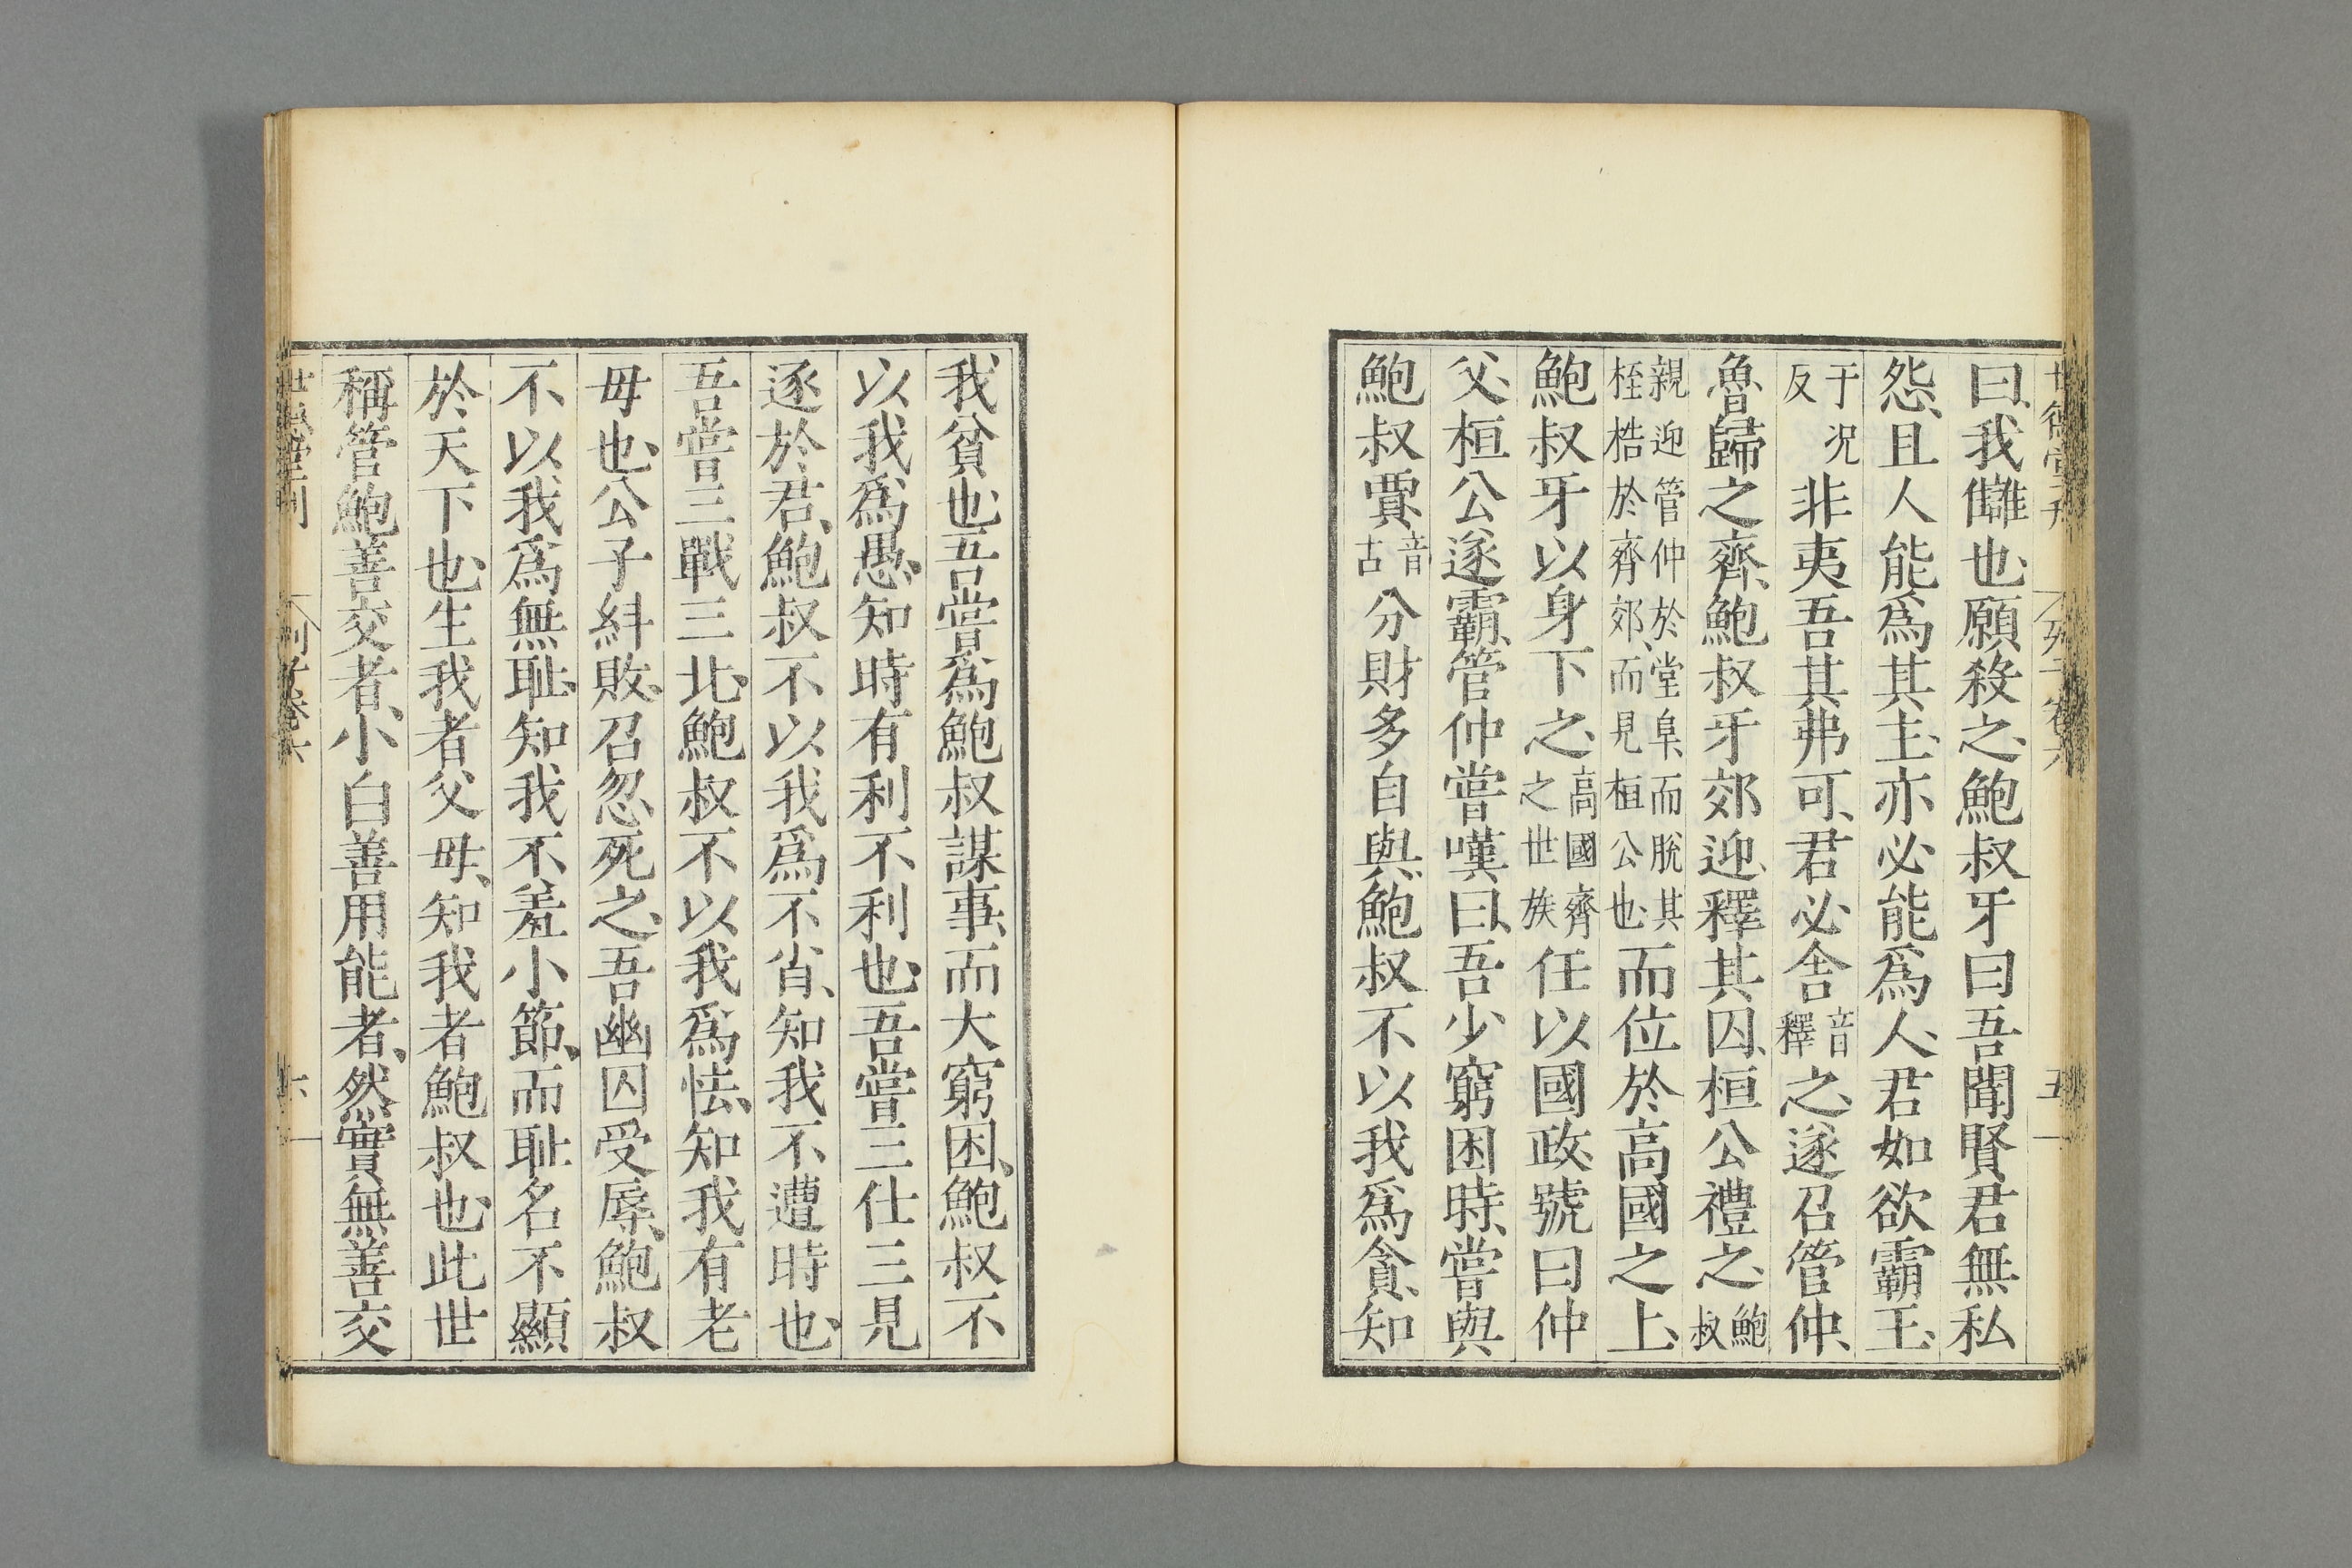 曰、我讎也、願殺之、鮑叔牙曰吾聞賢君無私
怨、且人能爲其主、亦必能爲人、君如欲霸王、
于況反非夷吾其弗可、君必舍音釋之、遂召管仲、
魯歸之齊、鮑叔牙郊迎、釋其囚、桓公禮之、鮑叔
親迎管仲於堂阜、而脫其桎梏於齊郊、而見桓公也、而位於高國之上、
鮑叔牙以身下之、高國齊之世族任以國政、號曰仲
父、桓公遂霸、管仲嘗嘆曰、吾少窮困時、嘗與
鮑叔賈、音古分財多自與、鮑叔不以我爲貪、知
我貧也、吾嘗爲鮑叔謀事、而大窮困、鮑叔不
以我爲愚、知時有利不利也、吾嘗三仕三見
逐於君、鮑叔不以我爲不肖、知我不遭時也、
吾嘗三戰三北、鮑叔不以我爲怯、知我有老
毋也、公子糾敗、召忽死之、吾幽囚受辱、鮑叔
不以我爲無耻、知我不羞小節、而耻名不顯
於天下也、生我者父毋、知我者鮑叔也、此世
稱管鮑善交者、小白善用能者、然實無善交
世德堂刊 列子卷六 六